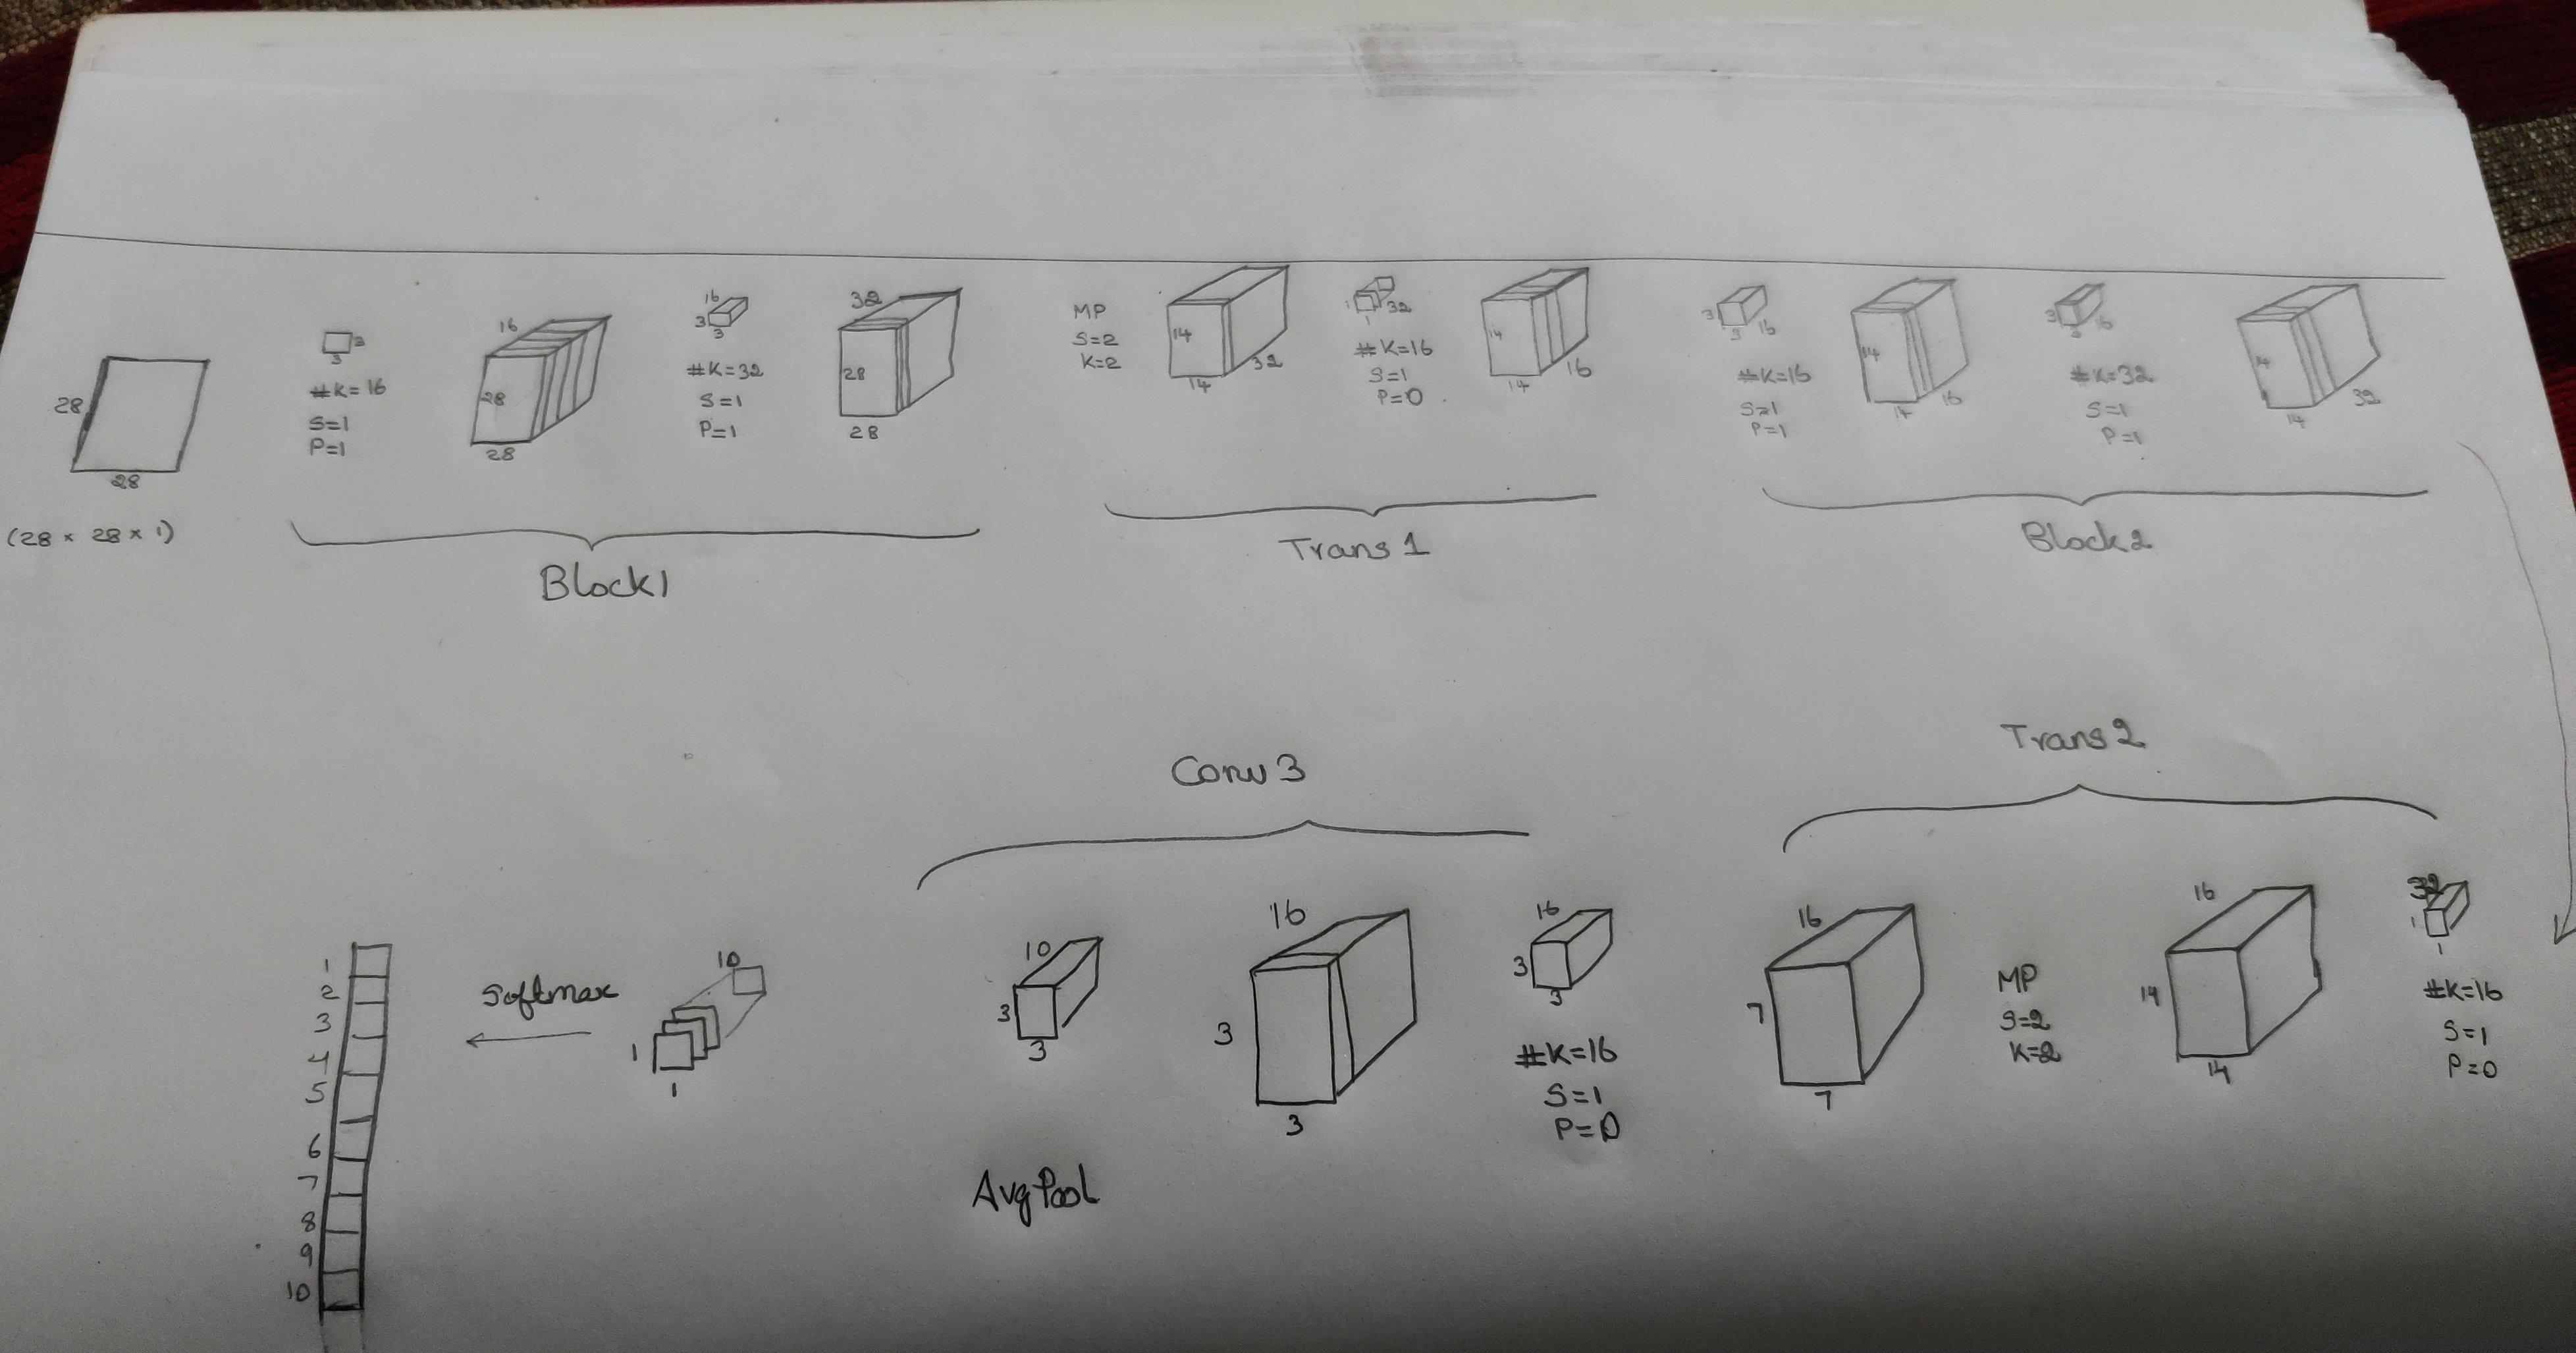 28
28
(28 × 28 × 1)
3
3
#K=16
S=1
P=1
16
28
28
16
3
3
#K=32
S=1
P=1
32
28
28
Block1
MP
S=2
K=2
14
14
32
1
1
32
#K=16
S=1
P=0
14
14
16
Trans 1
3
3
16
#K=16
S=1
P=1
14
14
16
3
3
16
#K=32
S=1
P=1
14
14
32
Block2
Trans 2
32
1
1
#K=16
S=1
P=0
16
14
14
MP
S=2
K=2
16
7
7
Conv 3
16
3
3
#K=16
S=1
P=0
16
3
3
10
3
3
AvgPool
10
1
1
Softmax
1
2
3
4
5
6
7
8
9
10